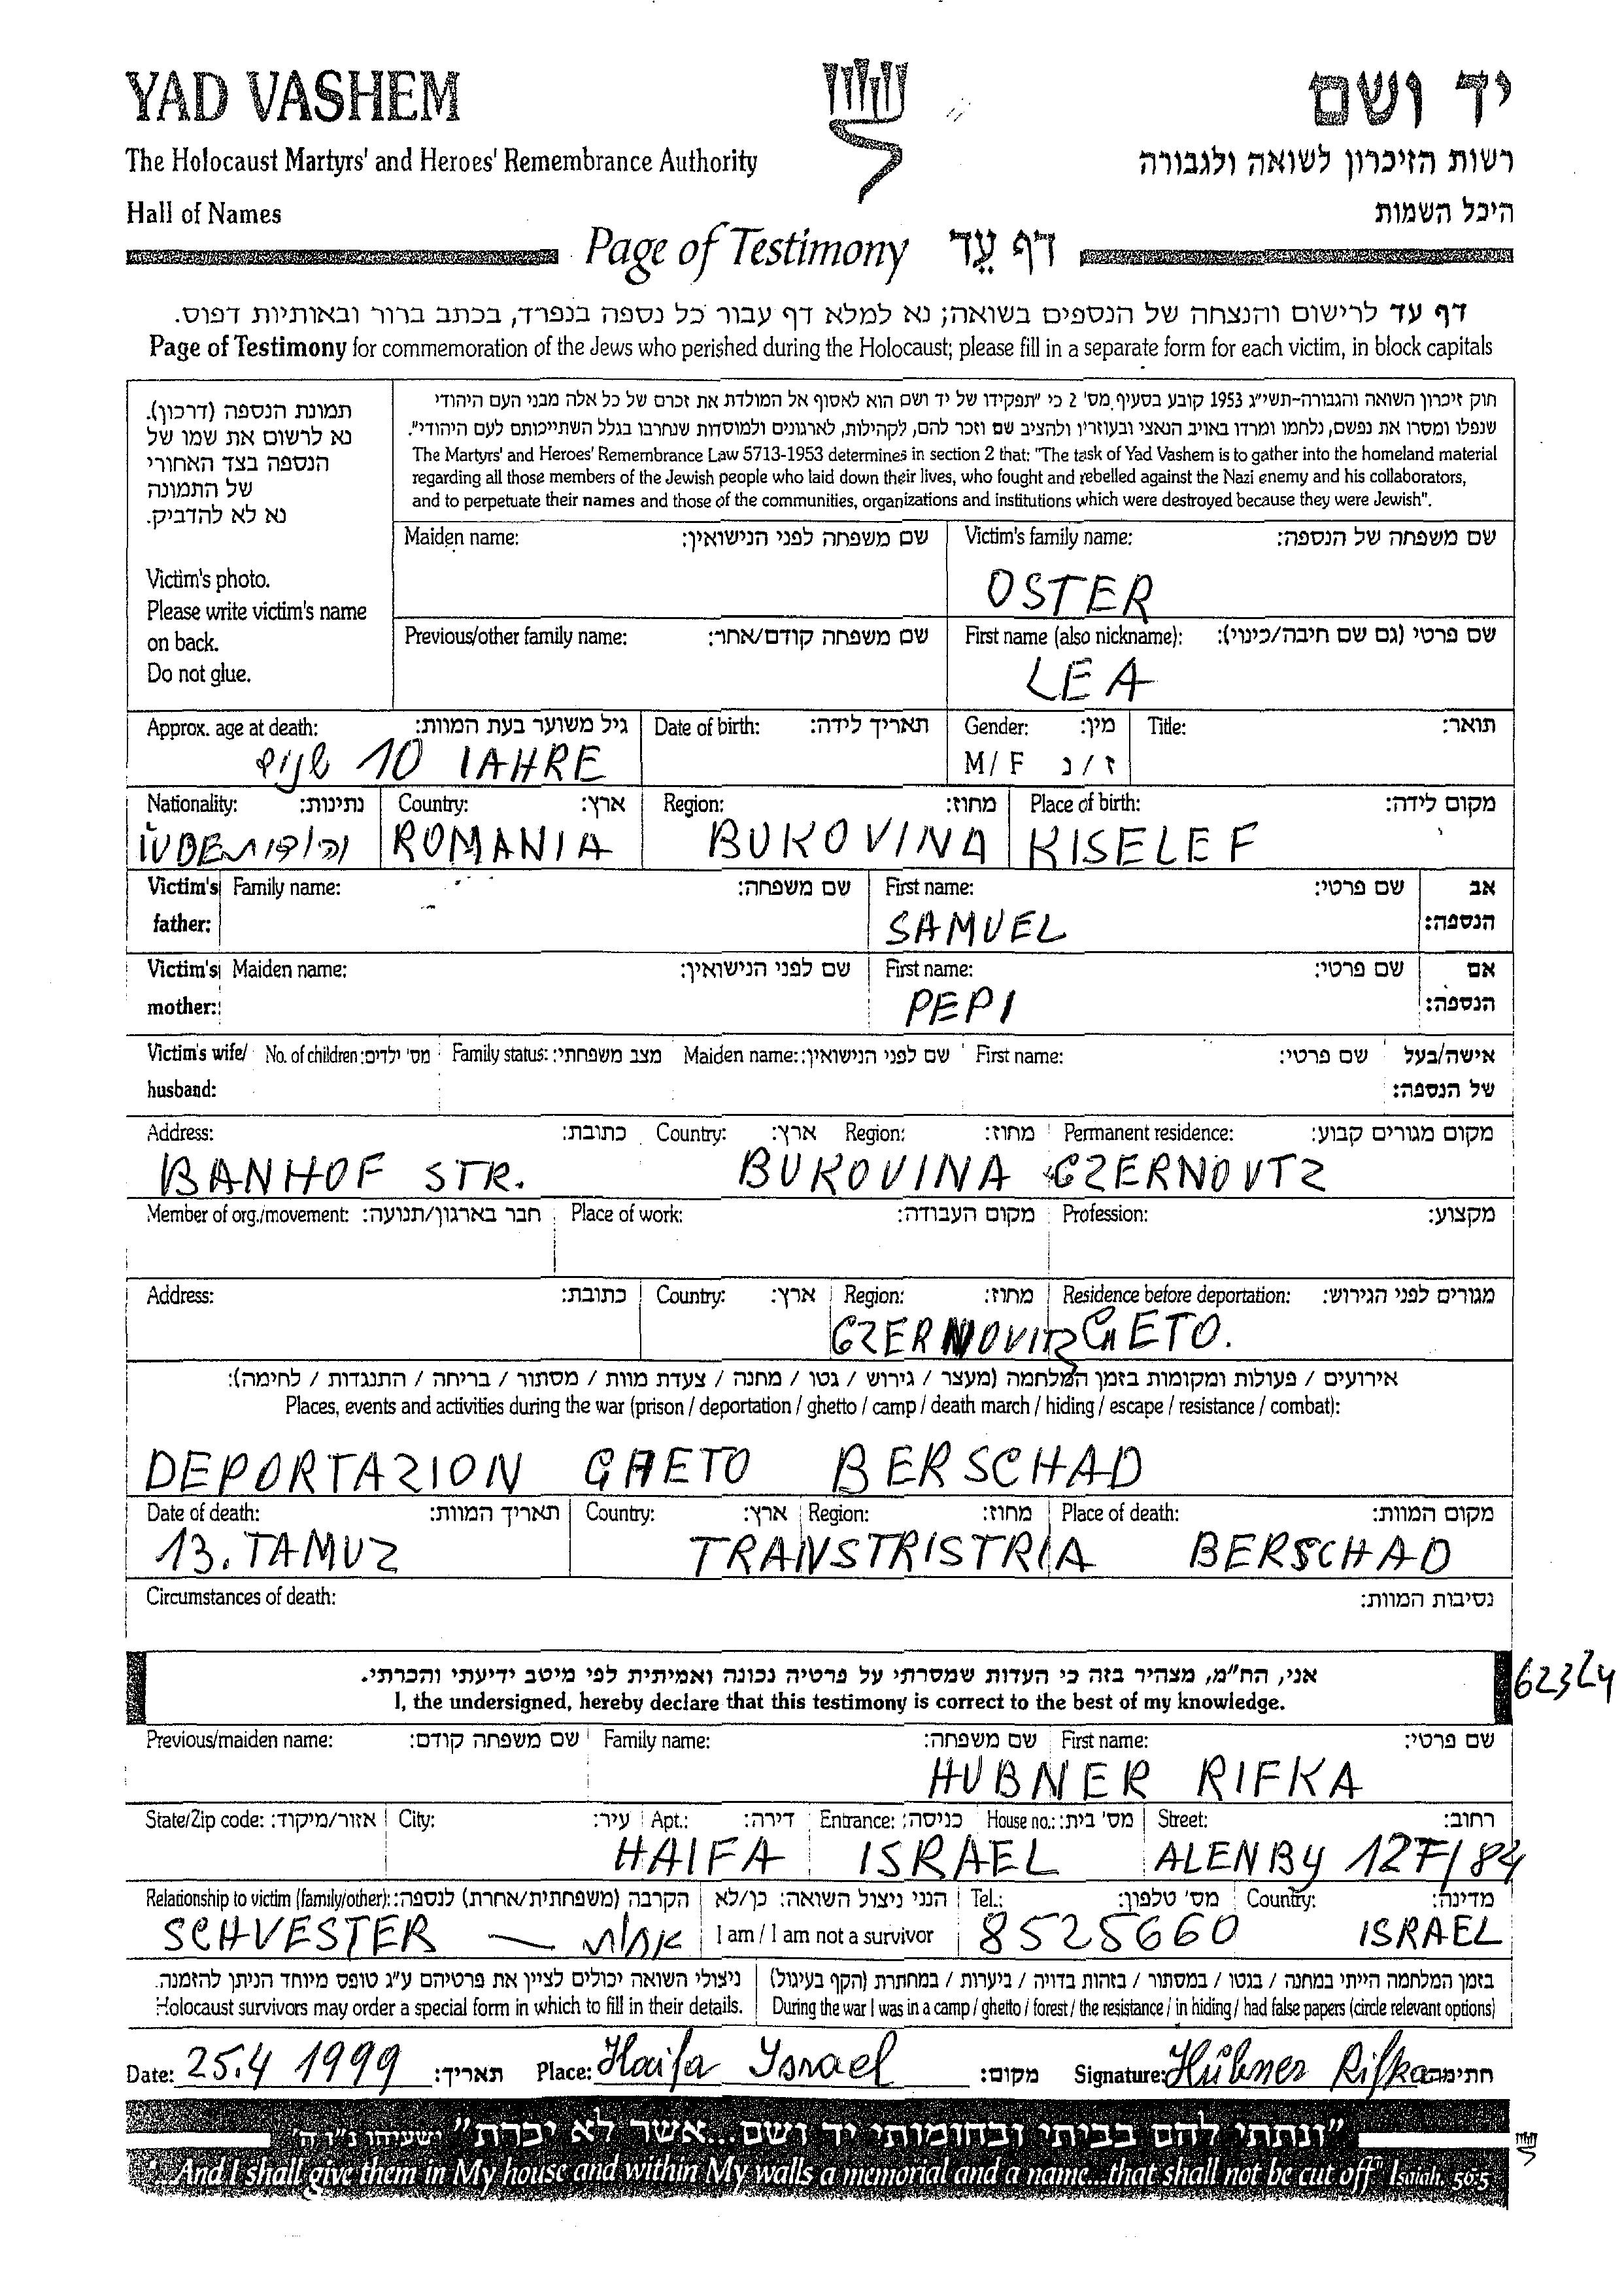 YAD VASHEM
יד ושם
The Holocaust Martyrs' and Heroes' Remembrance Authority
רשות הזיכרון לשואה ולגבורה
Hall of Names
היכל השמות
Page of Testimony דף עֵד
דף עד לרישום והנצחה של הנספים בשואה; נא למלא דף עבור כל נספה בנפרד, בכתב ברור ובאותיות דפוס.
Page of Testimony for commemoration of the Jews who perished during the Holocaust; please fill in a separate form for each victim, in block capitals
תמונת הנספה (דרכון).
נא לרשום את שמו של
הנספה בצד האחורי
של התמונה
נא לא להדביק.
Victim's photo.
Please write victim's name
on back.
Do not glue.
חוק זיכרון השואה והגבורה-תשי"ג 1953 קובע בסעיף מס' 2 כי "תפקידו של יד ושם הוא לאסוף אל המולדת את זכרם של כל אלה מבני העם היהודי
שנפלו ומסרו את נפשם, נלחמו ומרדו באויב הנאצי ובעוזריו ולהציב שם וזכר להם, לקהילות, לארגונים ולמוסדות שנחרבו בגלל השתייכותם לעם היהודי".
The Martyrs' and Heroes' Remembrance Law 5713-1953 determines in section 2 that: "The task of Yad Vashem is to gather into the homeland material
regarding all those members of the Jewish people who laid down their lives, who fought and rebelled against the Nazi enemy and his collaborators,
and to perpetuate their names and those of the communities, organizations and institutions which were destroyed because they were Jewish".
Maiden name: שם משפחה לפני הנישואין: Victim's family name: שם משפחה של הנספה:
OSTER
Previous/other family name: שם משפחה קודם/אחר: First name (also nickname): שם פרטי (גם שם חיבה/כינוי):
LEA
Approx. age at death: גיל משוער בעת המוות: Date of birth: תאריך לידה: Gender: מין: Title: תואר:
שנים 10 IAHRE M/ F ז/ נ
Nationality: נתינות: Country: ארץ: Region: מחוז: Place of birth: מקום לידה:
ROMANIA BUKOVINA KISELEF
Victim's father: Family name: שם משפחה: First name: שם פרטי: אב הנספה:
SAMUEL
Victim's mother: Maiden name: שם לפני הנישואין: First name: שם פרטי: אם הנספה:
PEPI
Victim's wife/ husband: No. of children: מס' ילדים: Family status: מצב משפחתי: Maiden name: שם לפני הנישואין: First name: שם פרטי: אישה/בעל של הנספה:
Address: כתובת: Country: ארץ: Region: מחוז: Permanent residence: מקום מגורים קבוע:
BANHOF STR. BUKOVINA CZERNOVTZ
Member of org./movement: חבר בארגון/תנועה: Place of work: מקום העבודה: Profession: מקצוע:
Address: כתובת: Country: ארץ: Region: מחוז: Residence before deportation: מגורים לפני הגירוש:
CZERNOVITZ GETO.
אירועים / פעולות ומקומות בזמן המלחמה (מעצר / גירוש / גטו / מחנה / צעדת מוות / מסתור / בריחה / התנגדות / לחימה):
Places, events and activities during the war (prison / deportation / ghetto / camp / death march / hiding / escape / resistance / combat):
DEPORTAZION GHETO BERSCHAD
Date of death: תאריך המוות: Country: ארץ: Region: מחוז: Place of death: מקום המוות:
13. TAMUZ TRANSTRISTRIA BERSCHAD
Circumstances of death: נסיבות המוות:
אני, הח"מ, מצהיר בזה כי העדות שמסרתי על פרטיה נכונה ואמיתית לפי מיטב ידיעתי והכרתי.
I, the undersigned, hereby declare that this testimony is correct to the best of my knowledge.
Previous/maiden name: שם משפחה קודם: Family name: שם משפחה: First name: שם פרטי:
HUBNER RIFKA
State/Zip code: אזור/מיקוד: City: עיר: Apt.: דירה: Entrance: כניסה: House no.: מס' בית: Street: רחוב:
HAIFA ISRAEL ALENBY 127/84
Relationship to victim (family/other): הקרבה (משפחתית/אחרת) לנספה: הנני ניצול השואה: כן/לא Tel.: מס' טלפון: Country: מדינה:
SCHVESTER — אחות I am / I am not a survivor 8525660 ISRAEL
ניצולי השואה יכולים לציין את פרטיהם ע"ג טופס מיוחד הניתן להזמנה. בזמן המלחמה הייתי במחנה / בגטו / במסתור / בזהות בדויה / ביערות / במחתרת (הקף בעיגול)
Holocaust survivors may order a special form in which to fill in their details. During the war I was in a camp / ghetto / forest / the resistance / in hiding / had false papers (circle relevant options)
Date: 25.4 1999 תאריך: Place: Haifa Israel מקום: Signature: Hübner Rifka חתימה
"ונתתי להם בביתי ובחומותי יד ושם...אשר לא יכרת" ישעיהו נ"ו ה'
"...And I shall give them in My house and within My walls a memorial and a name...that shall not be cut off" Isaiah, 56:5